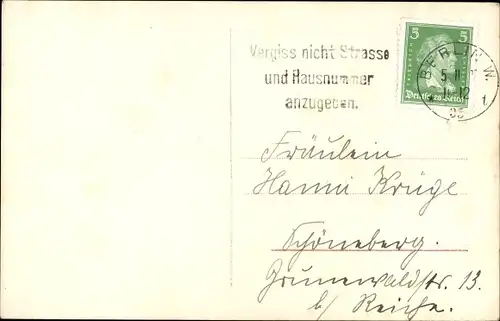 Vergiss nicht Strasse
und Hausnummer
anzugeben.
5 5
Deutsches Reich
BERLIN W.
5 11
11-12
35
t
Fräulein
Hanni Krüge
Schöneberg.
Grunewaldstr. 13.
b/ Reiche.